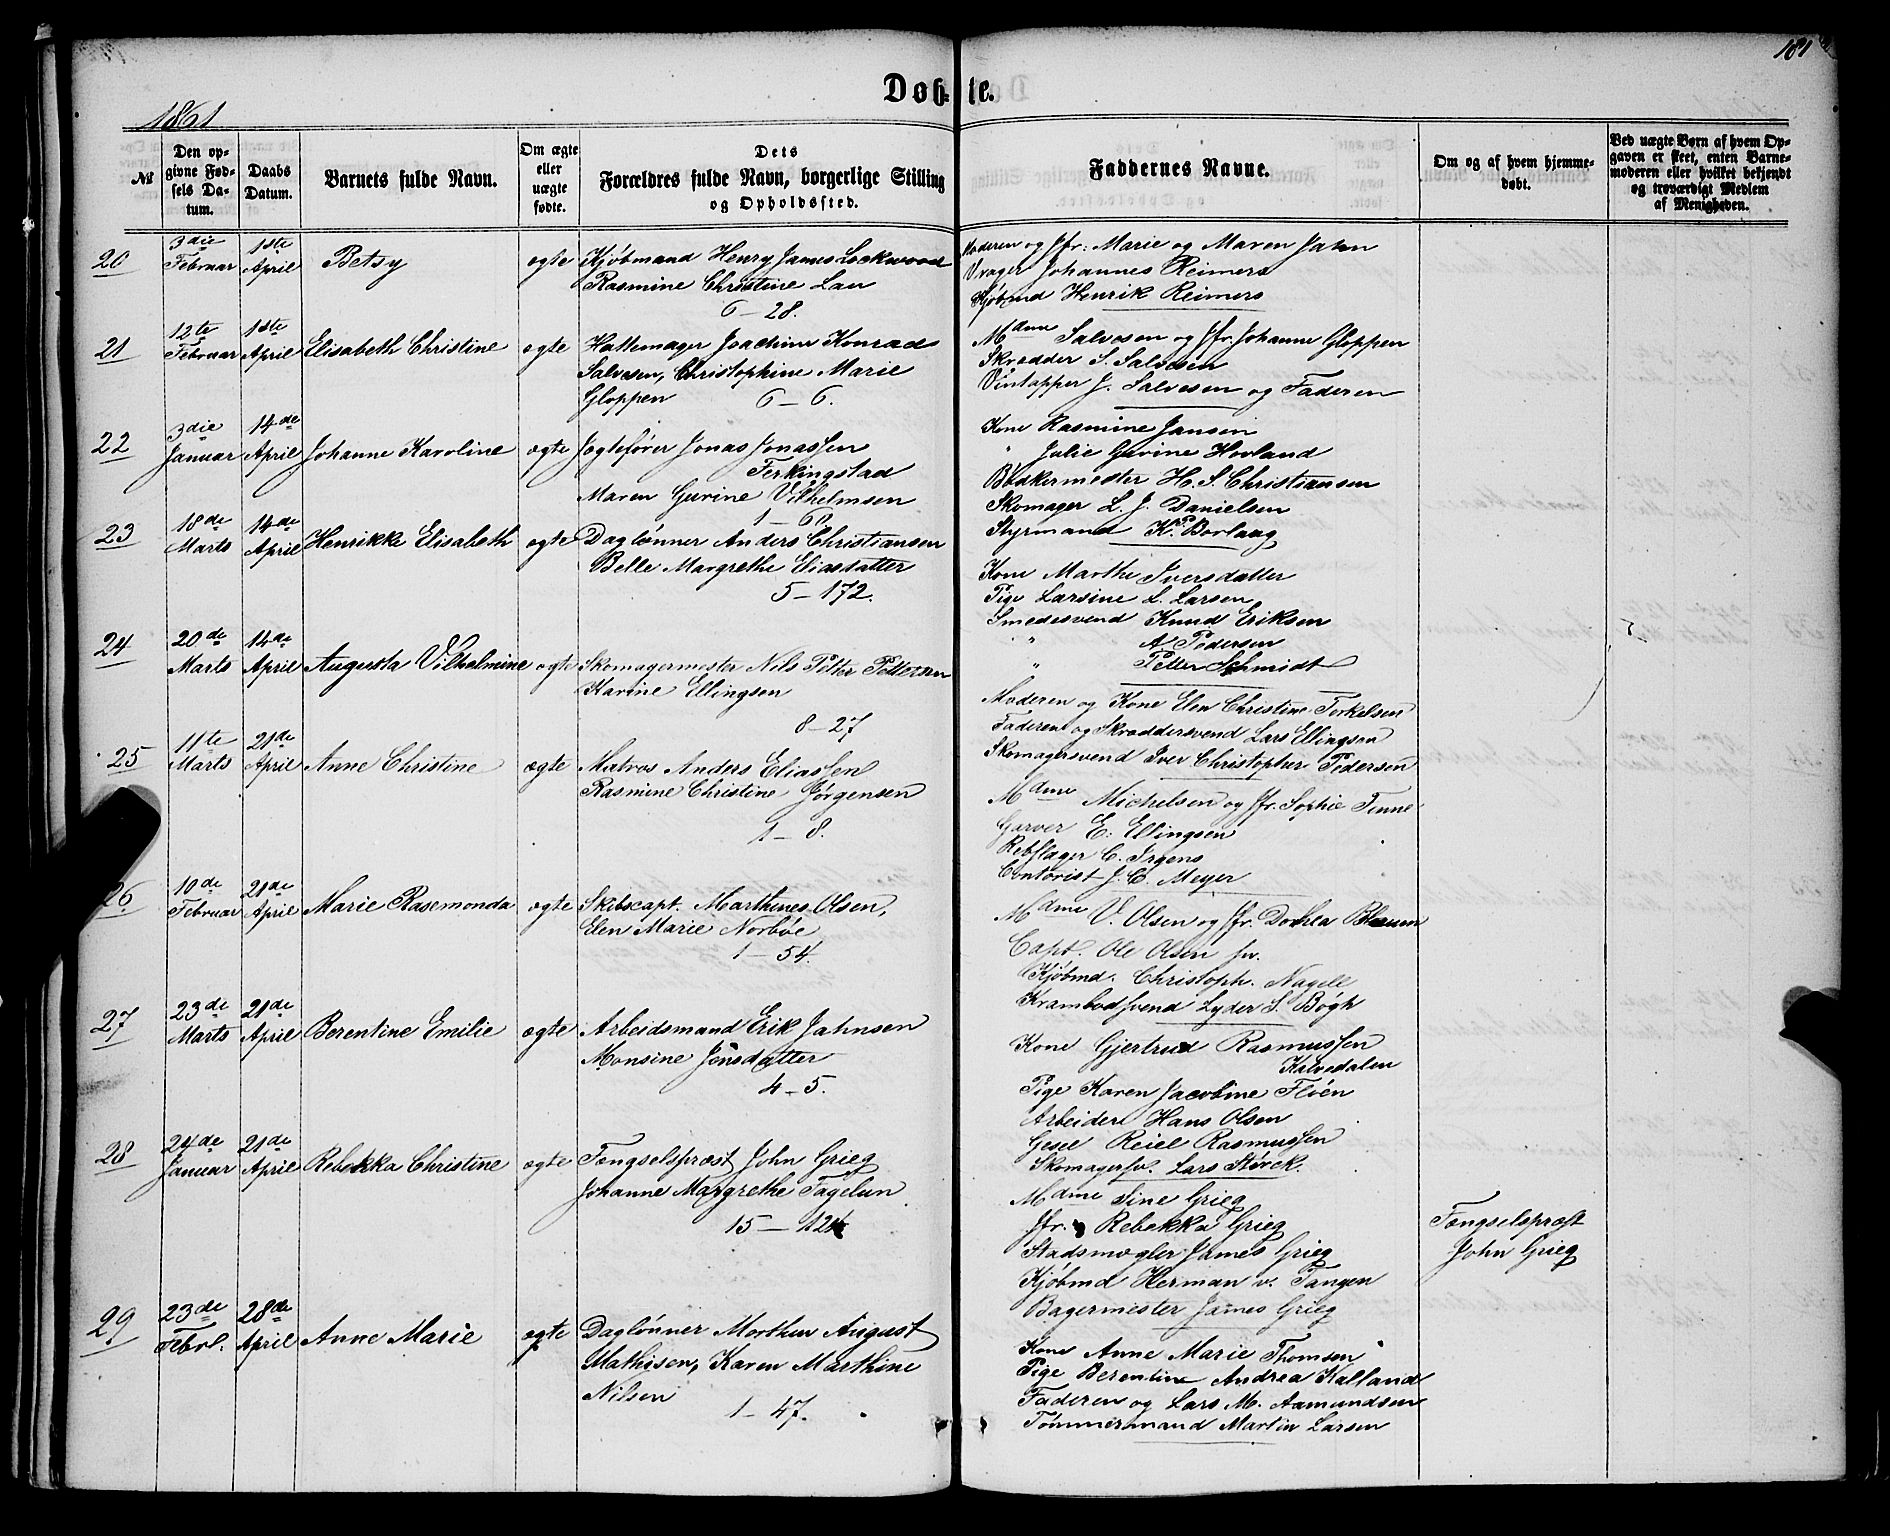 181
Døbte.
1861
№
Den opgivne Fødsels Datum.
Daabs Datum.
Barnets fulde Navn.
Om ægte eller uægte fødte.
Dets Forældres fulde Navn, borgerlige Stilling og Opholdssted.
Faddernes Navne.
Om og af hvem hjemmedøbt.
Ved uægte Børn af hvem Opgaven er skeet, enten Barnemoderen eller hvilket bekjendt og troværdigt Medlem af Menigheden.
20
3die Februar
1ste April
Betsy
ægte
Kjøbmand Henry James Lockwood
Rasmine Christine Lau
6 – 28.
Moderen og Jfr: Marie og Maren Jahn
Vrager Johannes Reimers
Kjøbmd Henrik Reimers
21
12te Februar
1ste April
Elisabeth Christine
ægte
Hattemager Joachim Konrad
Salvesen, Christophine Marie
Gloppen 6 – 6.
Mdme Salvesen og Jfr. Johanne Gloppen
Skrædder S. Salvesen
Vintapper J. Salvesen og Faderen
22
3die Januar
14de April
Johanne Karoline
ægte
Jægtefører Jonas Jonassen
Ferkingstad
Maren Gurine Vilhelmsen
1 – 60
Kone Rasmine Jansen
" Julie Gurine Hovland
Bødkermester H. S. Christiansen
Skomager L. J. Danielsen
Styrmand K. Borlaug
23
18de Marts
14de April
Henrikke Elisabeth
ægte
Daglønner Anders Christiansen
Belle Margrethe Eliasdatter
5 – 172.
Kone Marthe Iversdatter
Pige Larsine L. Larsen
Smedesvend Knud Eriksen
" A. Pedersen
" Petter Schmidt
24
20de Marts
14de April
Augusta Vilhelmine
ægte
Skomagermester Nils Petter Pettersen
Karine Ellingsen
8 – 27
Moderen og Kone Elen Christine Torkelsen
Faderen og Skræddersvend Lars Ellingsen
Skomagersvend Iver Christopher Pedersen
25
11te Marts
21de April
Anne Christine
ægte
Matros Anders Eliassen
Rasmine Christine Jørgensen
1 – 8.
Mdme Michelsen og Jfr. Sophie Finne
Garver E: Ellingsen
Rebslager C. Irgens
Contorist J. C. Meyer
26
10de Februar
21de April
Marie Rasemonda
ægte
Skibscapt. Marthines Olsen,
Elen Marie Norbøe
1 – 54.
Mdme V. Olsen og Jfr. Dothea Blaum
Capt. Ole Olsen jur.
Kjøbmd. Christoph. Nagell
Krambodsvend Lyder S. Bøgh
27
23de Marts
21de April
Berentine Emilie
ægte
Arbeidsmand Erik Jahnsen
Monsine Jensdatter
4 – 5.
Kone Gjertrud Rasmussen
Kalvedalen
Pige Karen Jacobine Fløen
Arbeider Hans Olsen
Gesel Reiel Rasmussen
Skomagersv. Lars Størck.
28
24de Januar
21de April
Rebekka Christine
ægte
Fængselspræst John Grieg
Johanne Margrethe Fagelun
15 – 124
Mdme Sine Grieg
Jfr. Rebekka Grieg
Stadsmægler James Grieg
Kjøbmd Herman v. Tangen
Bagermester James Grieg
Fængselspræst
John Grieg
29
23de Febr.
28de April
Anne Marie
ægte
Daglønner Morthen August
Mathisen, Karen Marthine
Nilsen
1 – 47.
Kone Anne Marie Thomsen
Pige Berentine Andrea Kalland
Faderen og Lars M. Aamundsen
Tømmermand Martin Larsen